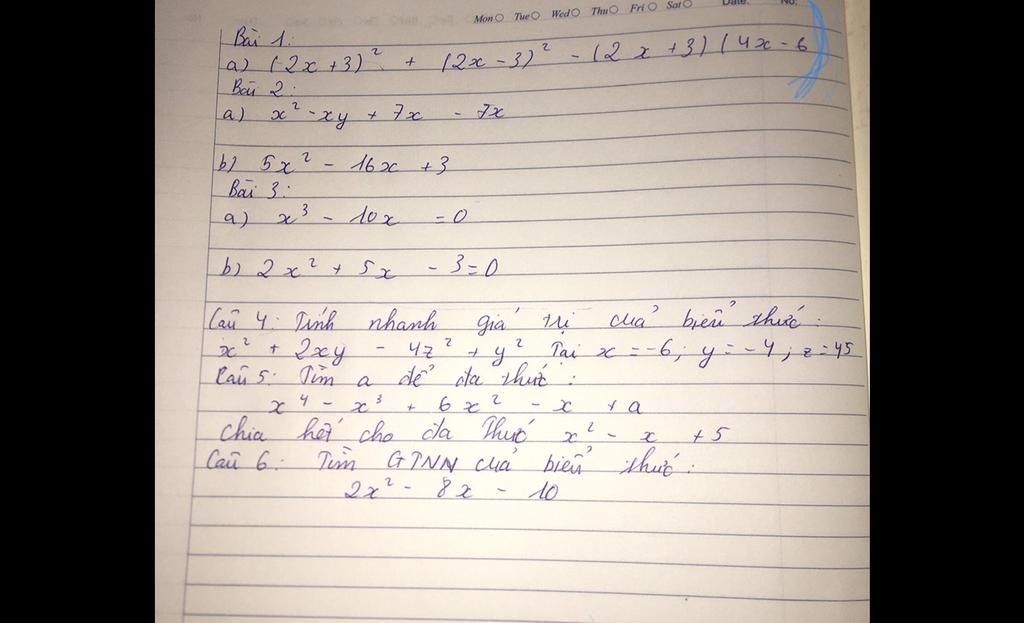 Mon Tue Wed Thu Fri Sat Date: No:
Bài 1:
a) (2x+3)² + (2x-3)² - (2x+3)(4x-6)
Bài 2:
a) x² - xy + 7x - 7x
b) 5x² - 16x + 3
Bài 3:
a) x³ - 10x = 0
b) 2x² + 5x - 3 = 0
Câu 4: Tính nhanh giá trị của biểu thức:
x² + 2xy - 4z² + y² Tại x = -6; y = -4; z = 45
Câu 5: Tìm a để đa thức:
x⁴ - x³ + 6x² - x + a
chia hết cho đa thức x² - x + 5
Câu 6: Tìm GTNN của biểu thức:
2x² - 8x - 10